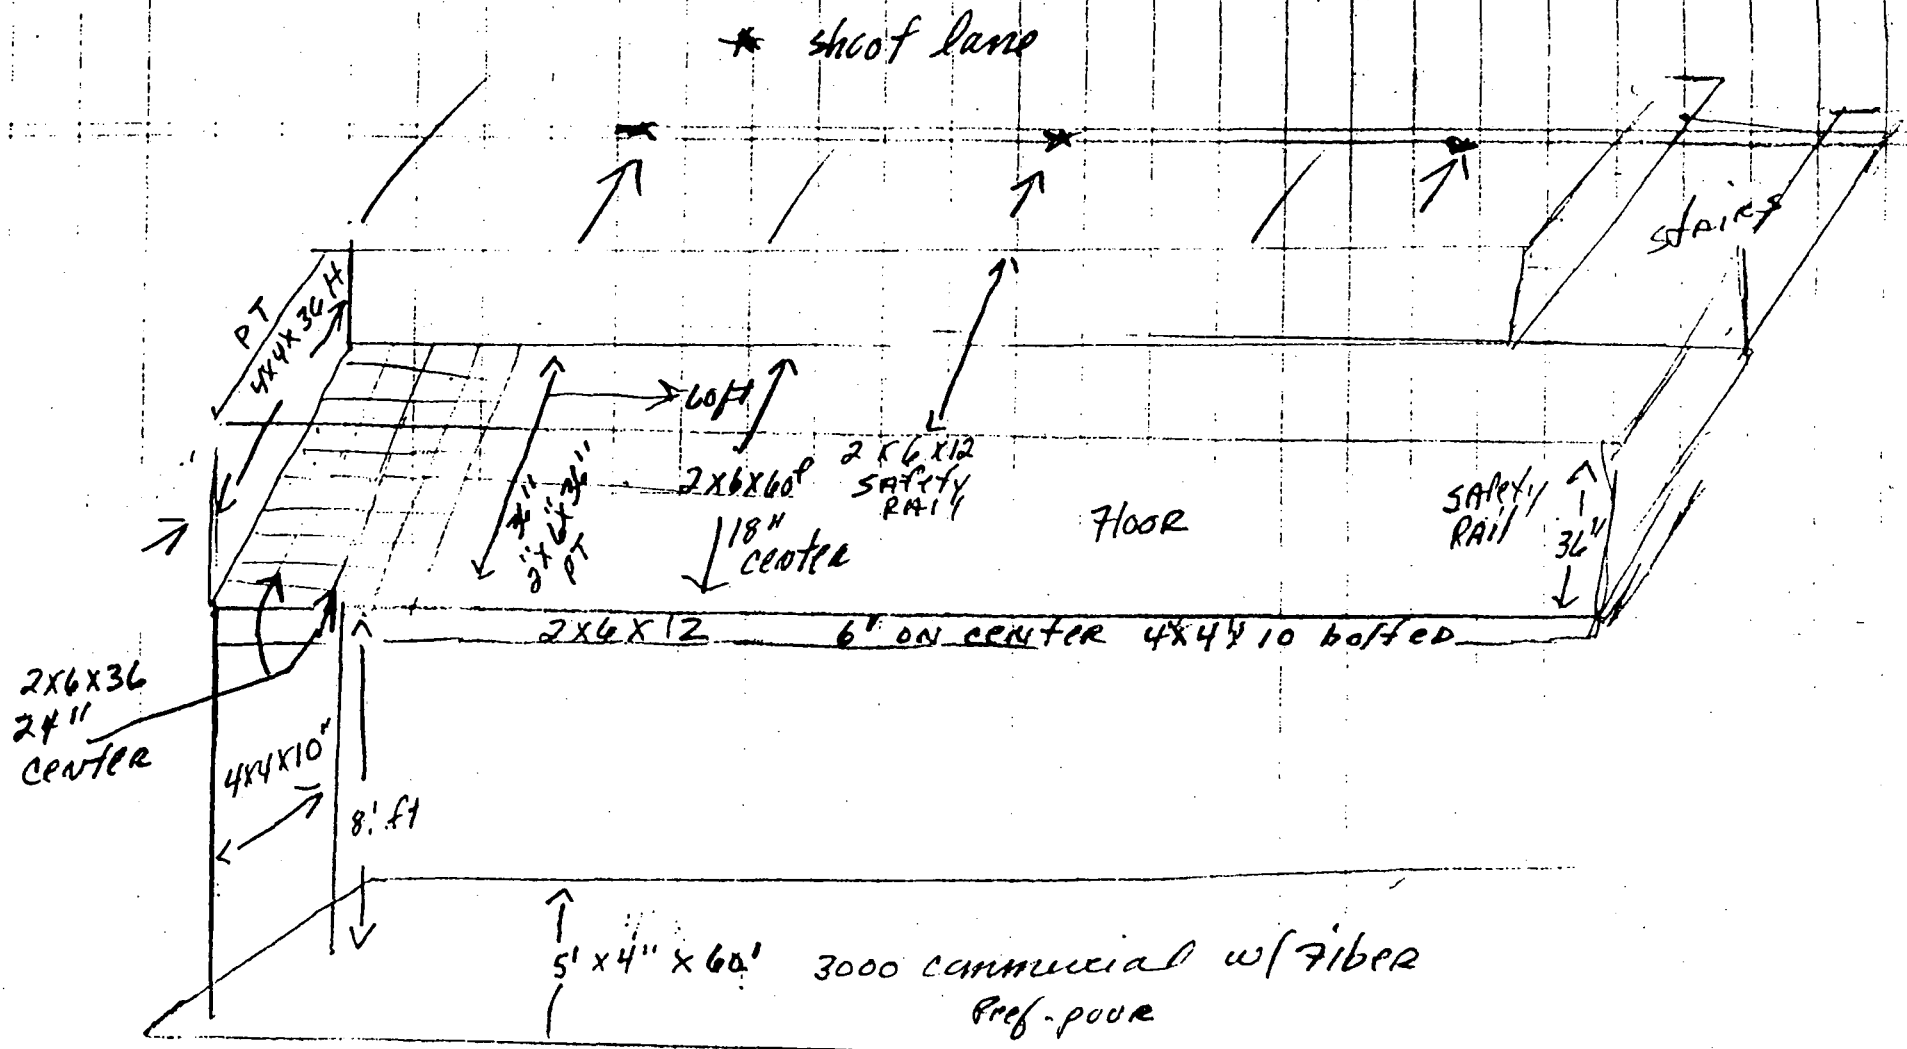 * shoot lane
stairs
PT
4x4x36 H
60ft
2"x6"x36"
PT
2x6x60'
18"
center
2x6x12
SAfety
RAil
Floor
SAfety
RAil
36"
2x6x12 6' ON center 4x4x10 bolted
2x6x36
24"
center
4x4x10"
8' ft
5' x 4" x 60' 3000 commercial w/ Fiber
Pref-pour